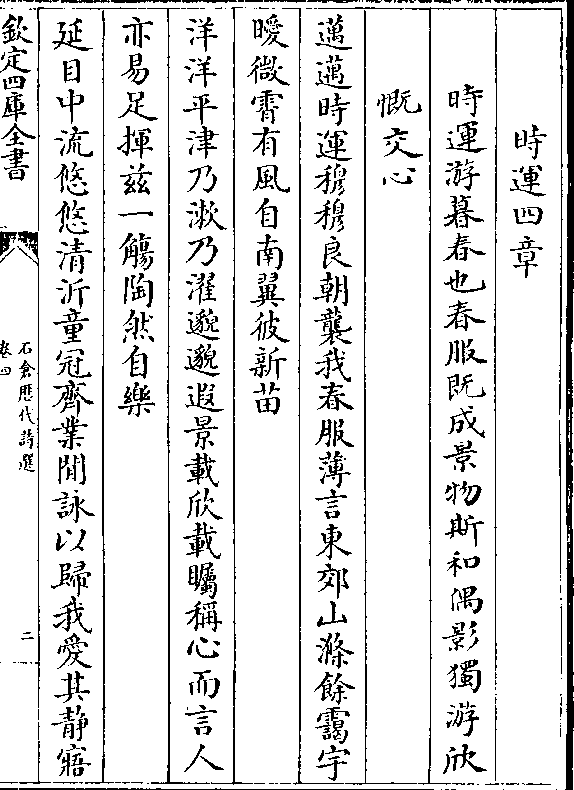 時運四章
時運游暮春也春服既成景物斯和偶影獨游欣
慨交心
邁邁時運穆穆良朝襲我春服薄言東郊山滌餘靄宇
曖微霄有風自南翼彼新苗
洋洋平津乃漱乃濯邈邈遐景載欣載矚稱心而言人
亦易足揮兹一觴陶然自樂
延目中流悠悠清沂童冠齊業閒詠以歸我愛其静寤
欽定四庫全書
石倉歴代詩選
卷四
二